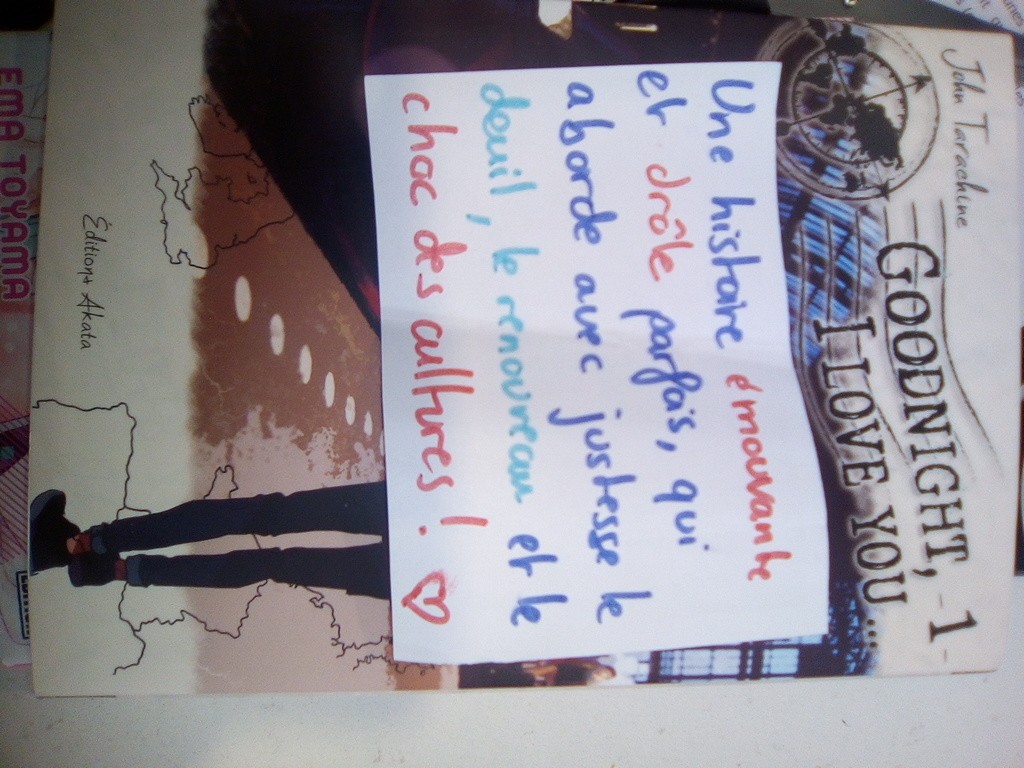 John Tarachine
GOODNIGHT, -1-
I LOVE YOU...
Une histoire émouvante
et drôle parfois, qui
aborde avec justesse le
deuil, le renouveau et le
choc des cultures ! ♡
Éditions Akata
EMA TOYAMA